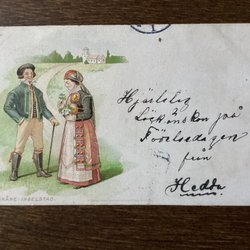 Hjärtelig
Lyckönskan på
Födelsedagen
från
Hedda
SKÅNE-INGELSTAD.